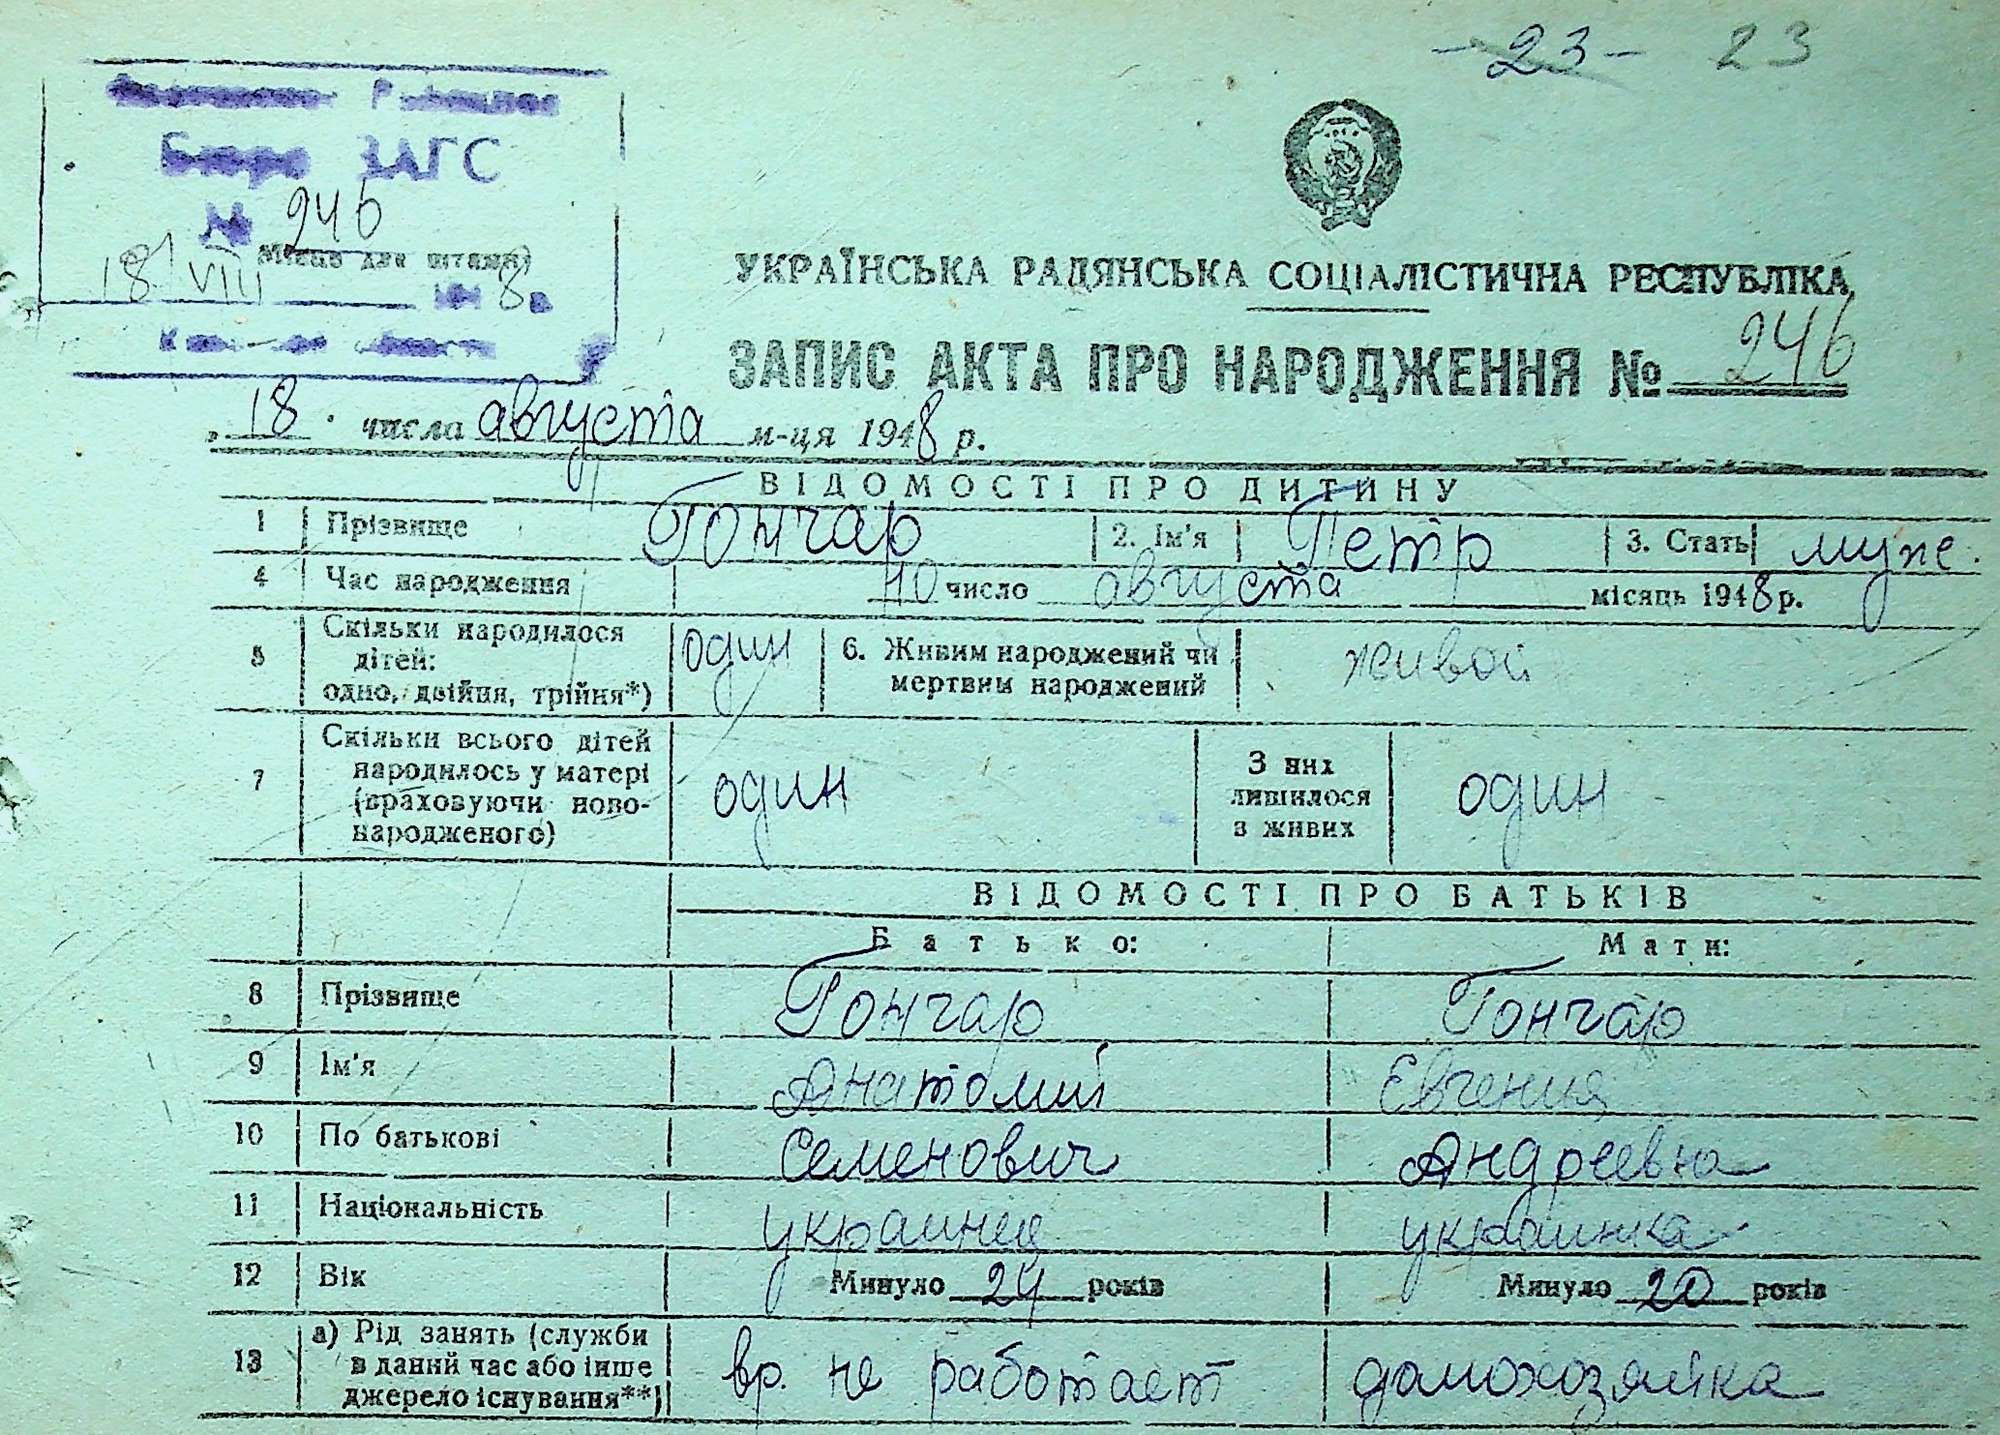 -23- 23
Бюро ЗАГС
№ 246
Місце для штампу
18/VIII 1948 г.
УКРАЇНСЬКА РАДЯНСЬКА СОЦІАЛІСТИЧНА РЕСПУБЛІКА
ЗАПИС АКТА ПРО НАРОДЖЕННЯ № 246
„18" числа августа м-ця 1948 р.
ВІДОМОСТІ ПРО ДИТИНУ
1 Прізвище Гончар 2. Ім'я Петр 3. Стать муж.
4 Час народження 10 число августа місяць 1948 р.
5 Скільки народилося дітей: одно, двійня, трійня*) один 6. Живим народжений чи мертвим народжений живой
7 Скільки всього дітей народилось у матері (враховуючи новонародженого) один З них лишилося в живих один
ВІДОМОСТІ ПРО БАТЬКІВ
Батько: Мати:
8 Прізвище Гончар Гончар
9 Ім'я Анатолий Евгения
10 По батькові Семенович Андреевна
11 Національність украинец украинка
12 Вік Минуло 24 років Минуло 20 років
13 а) Рід занять (служби в даний час або інше джерело існування**) вр. не работает домохозяйка